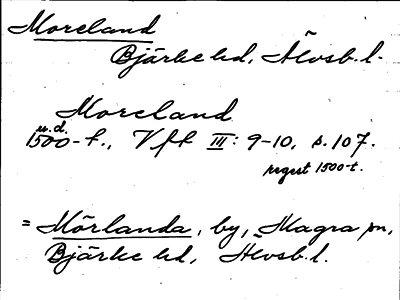 Moreland
Bjärke hd, Älvsb. l.
Moreland
u.d.
1500-t., Vft III: 9-10, s. 107.
regest 1500-t.
= Mörlanda, by, Magra sn,
Bjärke hd, Älvsb. l.